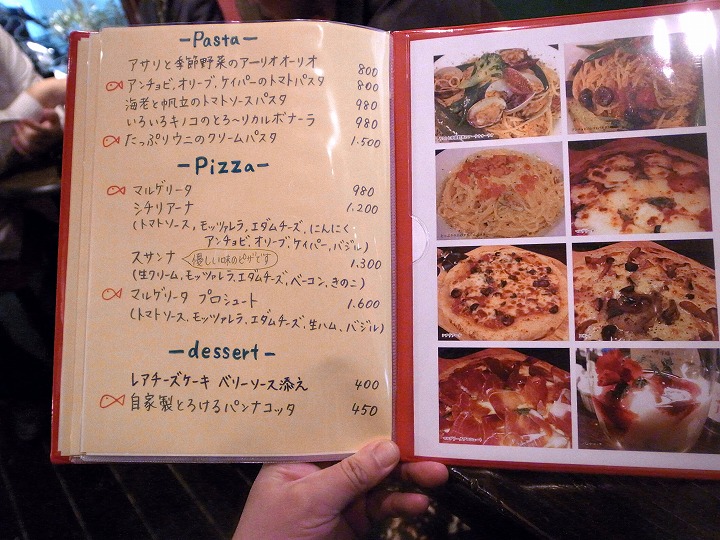 -Pasta-
アサリと季節野菜のアーリオオーリオ 800
アンチョビ、オリーブ、ケイパーのトマトパスタ 800
海老と帆立のトマトソースパスタ 980
いろいろキノコのとろ〜りカルボナーラ 980
たっぷりウニのクリームパスタ 1.500
-Pizza-
マルゲリータ 980
シチリアーナ 1.200
(トマトソース、モッツァレラ、エダムチーズ、にんにく
アンチョビ、オリーブ、ケイパー、バジル)
スサンナ 優しい味のピザです 1.300
(生クリーム、モッツァレラ、エダムチーズ、ベーコン、きのこ)
マルゲリータ プロシュート 1.600
(トマトソース、モッツァレラ、エダムチーズ、生ハム、バジル)
-dessert-
レアチーズケーキ ベリーソース添え 400
自家製とろけるパンナコッタ 450